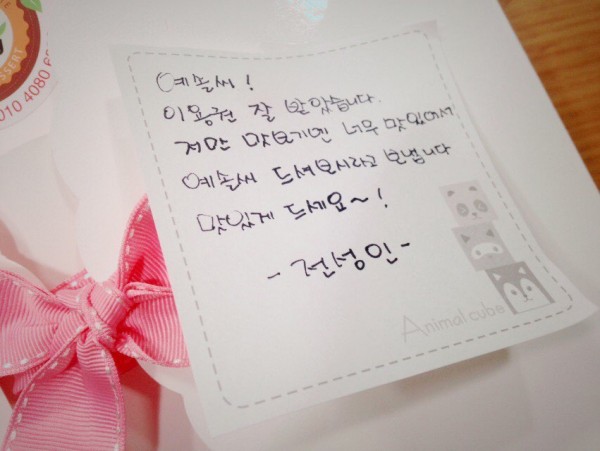 ESSERT
010 4080 6
예솔씨!
이용권 잘 받았습니다.
저만 맛보기엔 너무 맛있어서
예솔씨 드셔보시라고 보냅니다
맛있게 드세요~!
-전성인-
Animal cube